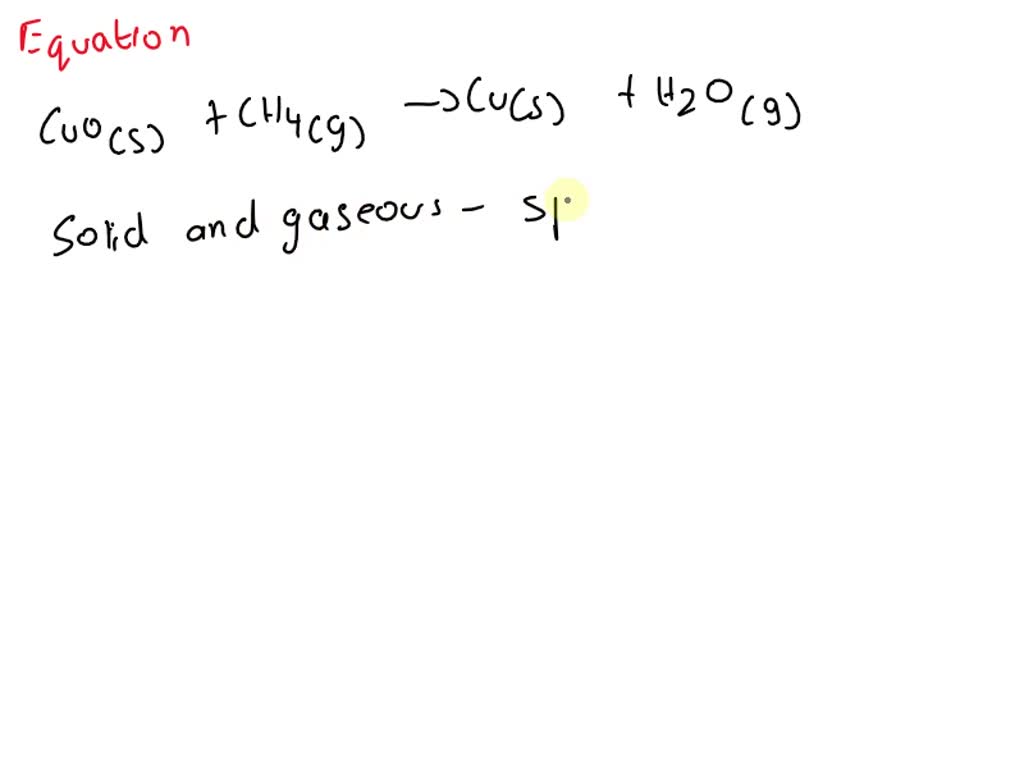 Equation
CuO(s) + CH4(g) → Cu(s) + H2O(g)
Solid and gaseous - sp